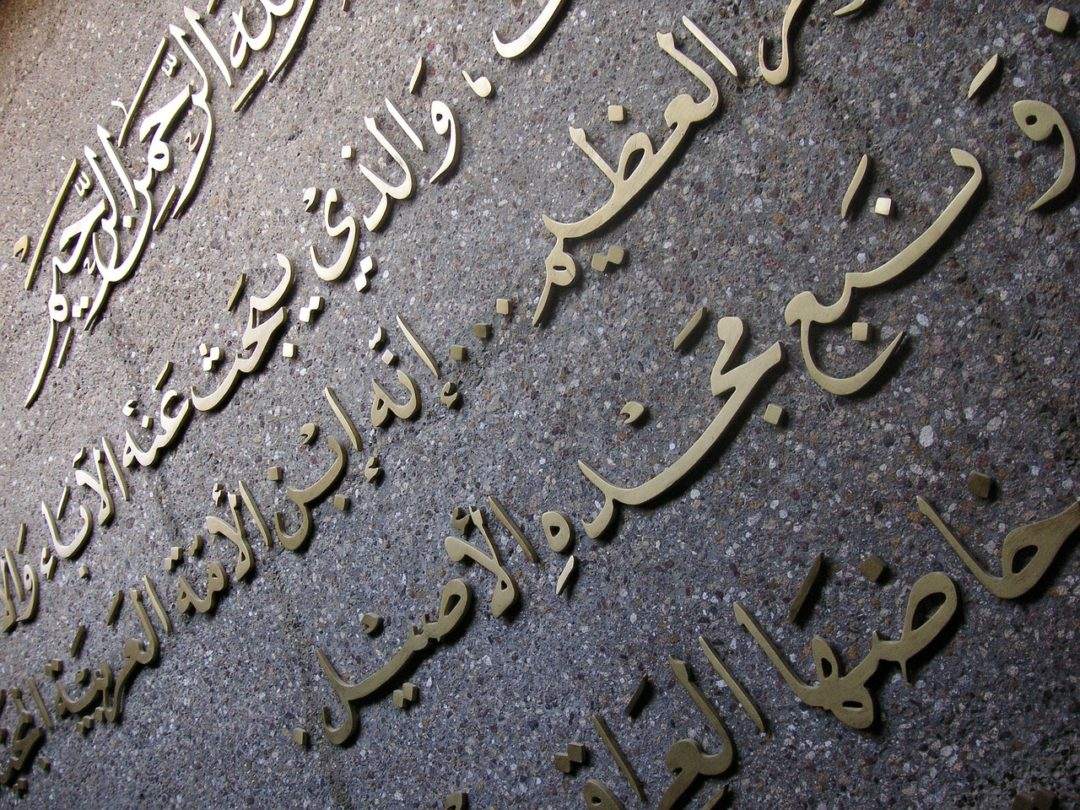 الله الرَّحمَنِ الرَّحِيمِ
وَالذيْ يبحَث عَنْه الآبَاء
العَظيم ... إنّه ابْن الأمّة العَربيّة
وَنَبع مَجْدهِ الأصيْل.
خاضهَا